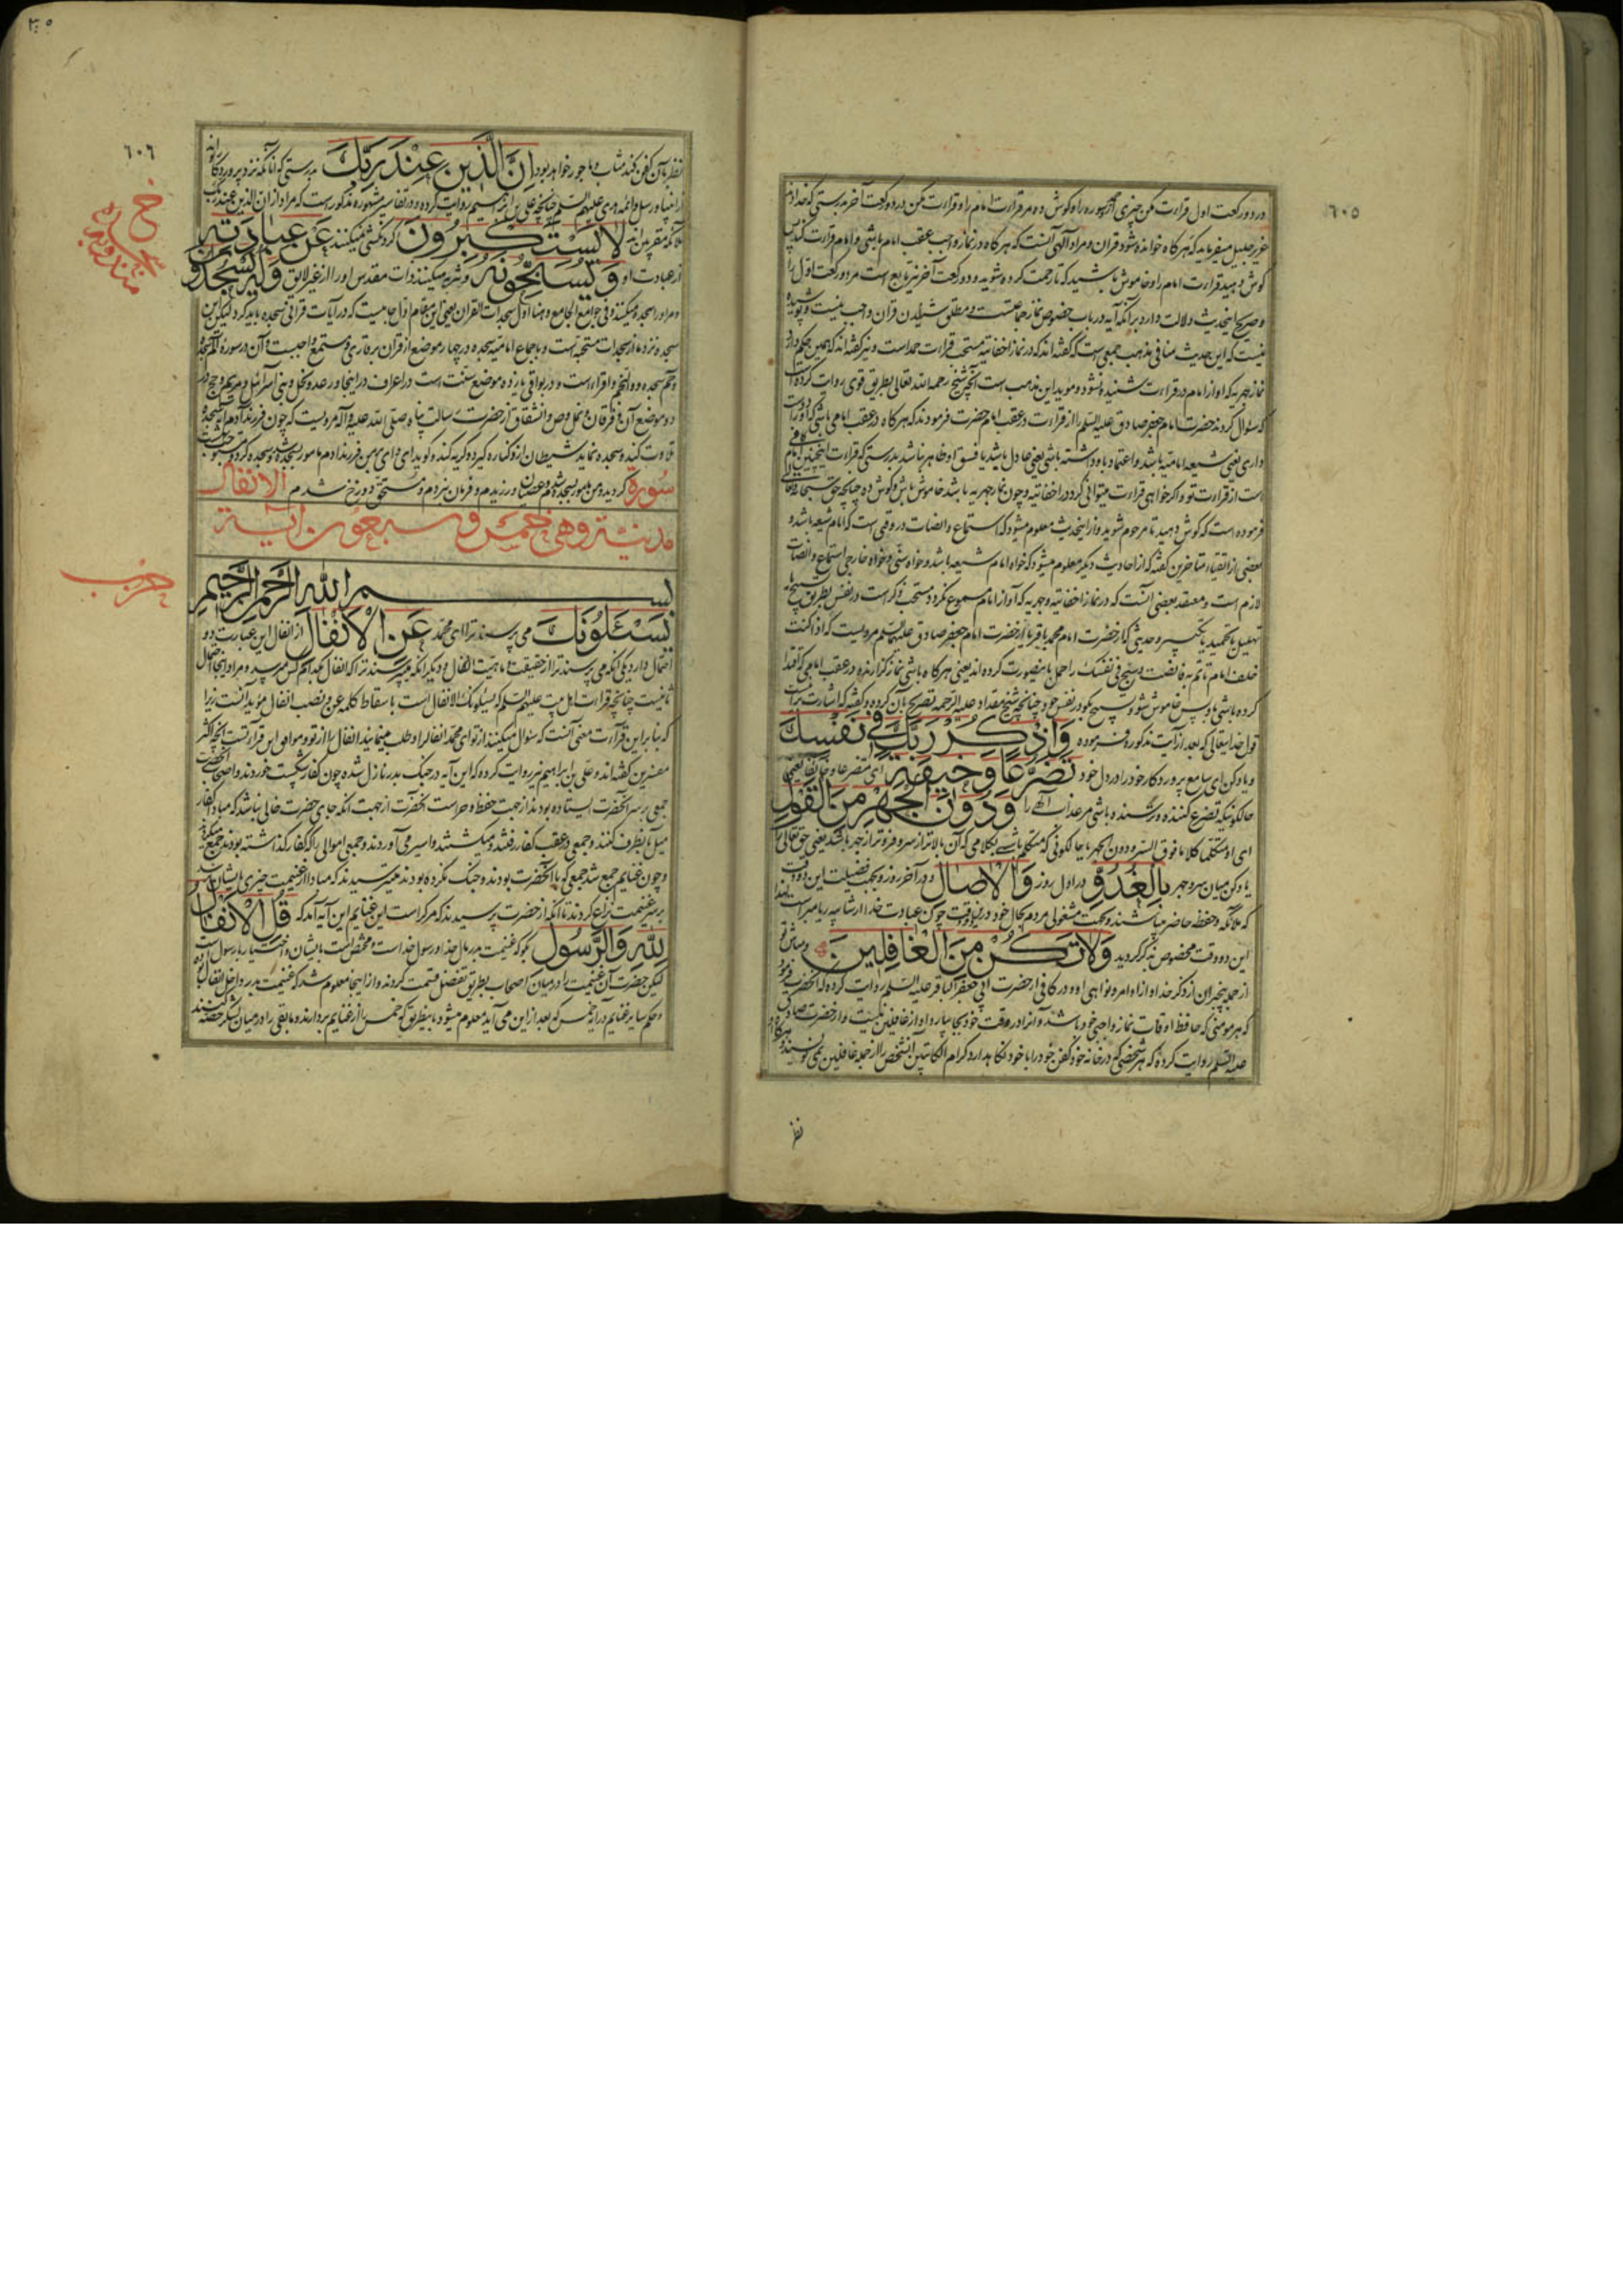 ٦٠٥
در دو رکعت اول قراءت مکن چیزی را و گوش ده مر قراءت امام را و قراءت مکن در دو رکعت آخر بدرستی که خدای
عزیز جلیل میفرماید که هر کاه خوانده شود قران و مراد الهی آنست که هر کاه در نماز واجب عقب امام باشی و امام قراءت کند پس
کوش دهید قراءت امام را و خاموش باشید که تا رحمت کرده شوید و دو رکعت آخر نیز تابع است مر دو رکعت اول را
و صریح اینحدیث دلالت دارد برآنکه آیه در باب خصوص نماز جماعتست و مطلق شنیدن قران واجب نیست و پوشیده
نیست که این حدیث منافی مذهب جمعی است که کفته‌اند که در نماز اخفاتیه مستحب قراءت حمد است و نیز کفته‌اند که همین حکم دارد
نماز جهریه که آواز امام در قراءت شنیده نشود و موید این مذهب است آنچه شیخ رحمه الله تعالی بطریق قوی روایت کرده است
که سؤال کردند حضرت امام جعفر صادق علیه السلم را از قراءت در عقب امام حضرت فرمودند که هر کاه در عقب امامی باشی که او را دوست
داری یعنی شیعه امامیه باشد و اعتماد باو داشته باشی یعنی عادل باشد یا فسق او ظاهر نباشد بدرستی که قراءت اینچنین امام کافی
است از قراءت تو و اکر خواهی قراءت میتوانی کرد در اخفاتیه و چون نماز جهریه باشد خاموش باش و کوش ده چنانچه حق سبحانه و تعالی
فرموده است که کوش دهید تا مرحوم شوید و از اینحدیث معلوم میشود که استماع و انصات در وقتی است که امام شیعه باشد و
بعضی از اتقیاء متاخرین کفته که از احادیث دیکر معلوم میشود که خواه امام شیعه باشد و خواه سنی و خواه خارجی استماع و انصات
لازم است و معتقد بعضی آنست که در نماز اخفاتیه و جهریه که آواز امام مسموع نکردد مستحب ذکر است در نفس بطریق تسبیح یا
تهلیل یا تحمید یا تکبیر و حدیثی که از حضرت امام محمد باقر یا از حضرت امام جعفر صادق علیهما السلم مرویست که اذا کنت
خلف امام تاتم به فانصت و سبح فی نفسک را حمل باینصورت کرده‌اند یعنی هر کاه باشی نماز کزارنده در عقب امامی که اقتدا
کرده باشی باو پس خاموش شو و تسبیح بکو در نفس خود چنانچه شیخ مقداد علیه الرحمه تصریح بآن کرده و کفته که اشارت بر آنست
قول خدایتعالی که بعد از آیت مذکوره فرموده وَاذْكُرْ رَبَّكَ فِي نَفْسِكَ
و یاد کن ای سامع پروردکار خود را در دل خود تَضَرُّعًا وَخِيفَةً ای متضرعا و خائفا یعنی
حالکونیکه تضرع کننده و ترسنده باشی مر عذاب الهی را وَدُونَ الْجَهْرِ مِنَ الْقَوْلِ
ای او متکلما کلاما فوق السر و دون الجهر یا حالکونی که متکلم باشی بکلامی که آن بالاتر از سر و فروتر از جهر باشد یعنی حق تعالی را
یاد کن میان سر و جهر بِالْغُدُوِّ در اول روز وَالْآصَالِ و در آخر روز و بجهت فضیلت این دو وقت
که ملائکه و حفظه حاضر میباشند و بجهت مشغولی مردم بحال خود در این وقت چون عبادت خدا از شایبه ریا مبراست لهذا
این دو وقت مخصوص بذکر کردید وَلَا تَكُنْ مِنَ الْغَافِلِينَ و مباش تو
از جمله بیخبران از ذکر خدا و از اوامر و نواهی او و در کافی از حضرت ابی جعفر الباقر علیه السلم روایت کرده که آنحضرت فرمود
که هر مومنی که حافظ اوقات نماز واجبی خود باشد و آنرا در وقت خود بجا بیارد او از غافلین نیست و از حضرت صادق
علیه السلم روایت کرده که هر شخصی که در خانه خود کفن خود را با خود نکاه بدارد کرام الکاتبین آنشخص را از جمله غافلین نمی نویسند و هر کاه
نظر
٦٠٦
نظر بآن کفن کند مثاب و ماجور خواهد بود إِنَّ الَّذِينَ عِنْدَ رَبِّكَ بدرستی که آنانکه نزد پروردکار تواند
از انبیا و رسل و ائمه هدی علیهم السلم چنانچه علی بن ابراهیم روایت کرده و در تفاسیر مشهوره مذکور است که مراد از ان الذین عند ربک
ملائکه مقربین‌اند لَا يَسْتَكْبِرُونَ کردنکشی نمیکنند عَنْ عِبَادَتِهِ
از عبادت او وَيُسَبِّحُونَهُ و تنزیه میکنند ذات مقدس او را از غیر لایق وَلَهُ يَسْجُدُونَ
و مر او را سجده میکنند و فی جوامع الجامع و هذا اول سجدات القران یعنی این مقام اول جاییست که در آیات قرآنی سجده باید کرد لیکن این
سجده نزد ما از سجدات مستحبه است و باجماع امامیه سجده در چهار موضع از قران بر قاری و مستمع واجبست و آن در سوره الم سجده
و حم سجده و و النجم و اقراء است و در بواقی یازده موضع سنت است در اعراف در اینجا و رعد و نحل و بنی اسرائیل و مریم و حج در
دو موضع آن و فرقان و نمل و ص و انشقاق از حضرت رسالت پناه صلی الله علیه و آله مرویست که چون فرزند آدم آیه سجده
تلاوت کند و سجده نماید شیطان از و کناره کیرد و کریه کند و کوید ای وای بر من فرزند ادم مامور بسجده شد و سجده کرد و مستوجب جنت
کردید و من مامور بسجده شدم و عصیان ورزیدم و فرمان نبردم و مستحق دوزخ شدم سورة الانفال
مدنیة وهی خمس و سبعون آیة
بسم الله الرحمن الرحيم
يَسْئَلُونَكَ می پرسند ترا ای محمد عَنِ الْأَنْفَالِ از انفال این عبارت دو
احتمال دارد یکی آنکه می پرسند ترا از حقیقت و ماهیت انفال و دیکر آنکه میپرسند ترا که انفال بکدام کس میرسد و مراد اینجا احتمال
ثانیست چنانچه قراءت اهل بیت علیهم السلم که یسئلونک الانفال است باسقاط کلمه عن و نصب انفال مؤید آنست زیرا
که بنا بر این قراءت معنی آنست که سؤال میکنند از تو ای محمد انفال را و طلب مینمایند انفال را از تو و موافق این قراءتست آنچه اکثر
مفسرین کفته‌اند و علی بن ابراهیم نیز روایت کرده که این آیه در جنک بدر نازل شده چون کفار شکست خوردند و اصحاب آنحضرت
جمعی بر سر آنحضرت ایستاده بودند از جهت حفظ و حراست آنحضرت از جهت آنکه جای حضرت خالی نباشد که مبادا کفار
میل بآنطرف کنند و جمعی در عقب کفار رفتند و میکشتند و اسیر می آوردند و جمعی اموالی را که کفار کذاشته بودند جمع میکردند
و چون غنایم جمع شد جمعی که با آنحضرت بودند و جنک نکرده بودند میترسیدند که مبادا از غنیمت چیزی بایشان نرسد
بر سر غنیمت نزاع کردند تا آنکه از حضرت پرسیدند که مر کراست این غنایم این آیه آمد که قُلِ الْأَنْفَالُ
لِلَّهِ وَالرَّسُولِ بکو که غنیمت بدر مال خدا و رسول خداست و مختص است بایشان و اختیار با رسول است
لیکن حضرت آن غنیمت را در میان اصحاب بطریق تفضل قسمت کردند و از اینجا معلوم شد که غنیمت بدر داخل انفال بوده
و حکم سایر غنایم در آیه خمس که بعد از این می آید معلوم میشود باینطریق که خمس را از غنایم بردارند و مابقی را در میان لشکر حصه کنند
سجده مندوبه
حزب